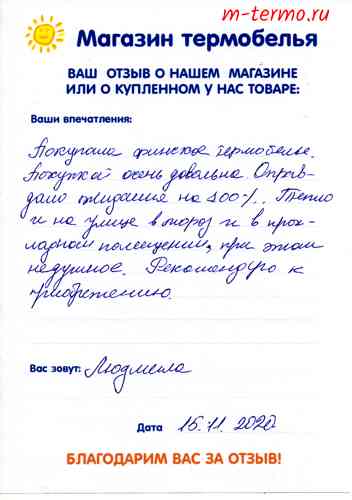 m-termo.ru
Магазин термобелья
ВАШ ОТЗЫВ О НАШЕМ МАГАЗИНЕ
ИЛИ О КУПЛЕННОМ У НАС ТОВАРЕ:
Ваши впечатления:
Покупала финское термобелье.
Покупкой очень довольна. Оправ-
дало ожидания на 100%. Тепло
и на улице в мороз и в прох-
ладном помещении, при этом
недушное. Рекомендую к
приобретению.
Вас зовут: Людмила
Дата 15.11.2020
БЛАГОДАРИМ ВАС ЗА ОТЗЫВ!